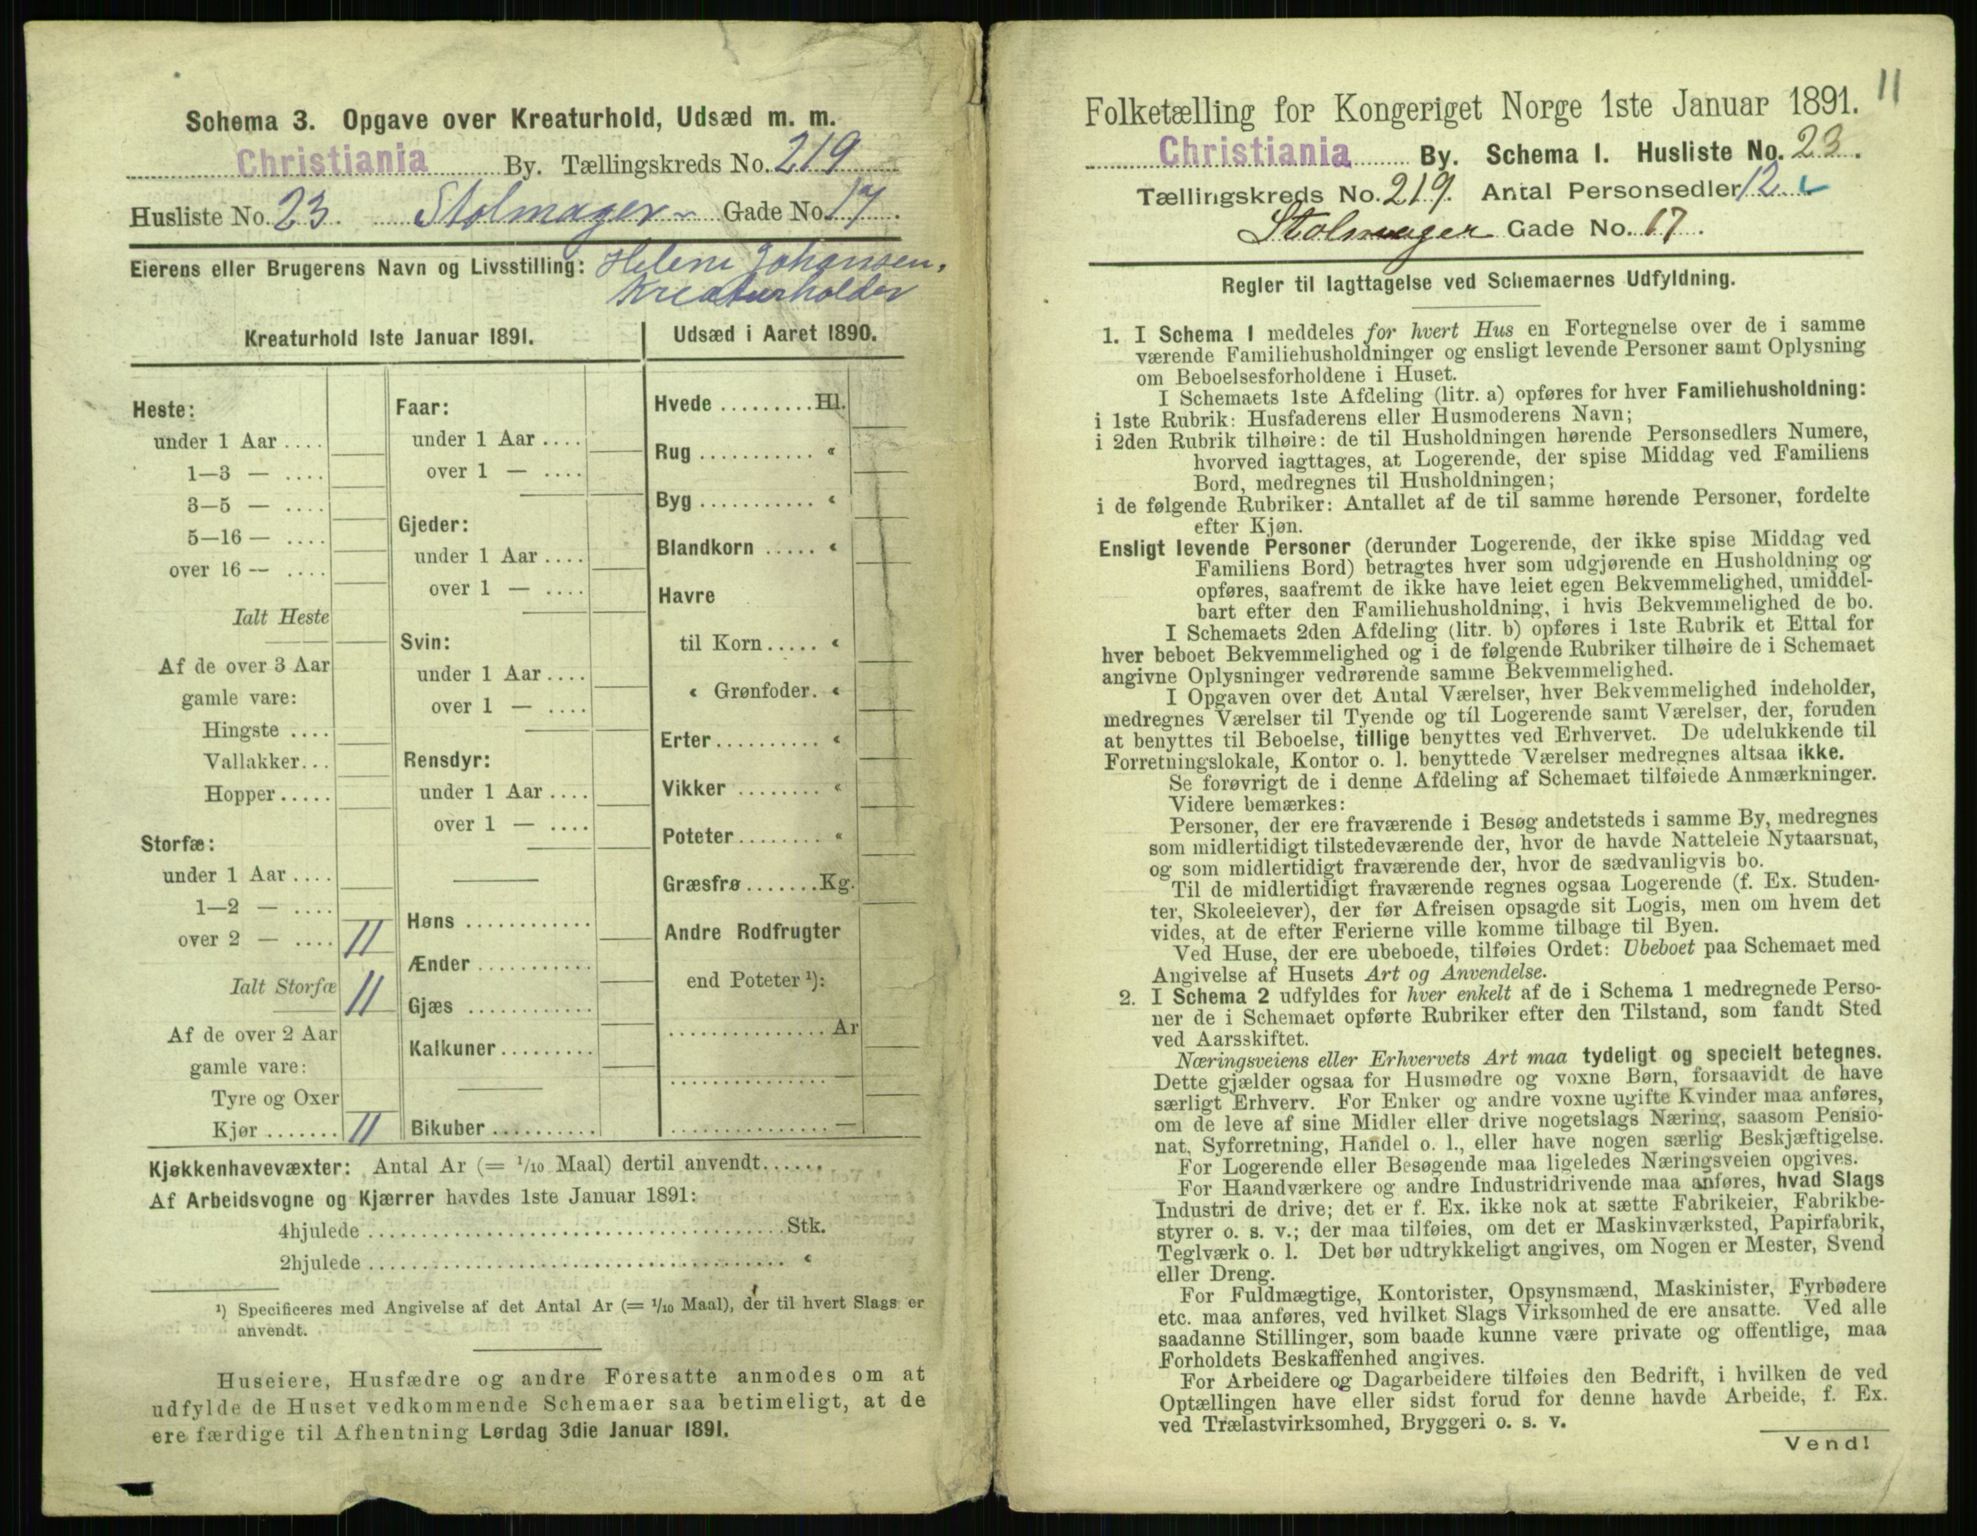 Schema 3. Opgave over Kreaturhold, Udsæd m. m.
Christiania By. Tællingskreds No. 219
Husliste No. 23. Stolmager- Gade No. 17.
Eierens eller Brugerens Navn og Livsstilling: Helene Johansen,
Kreaturholder
Kreaturhold 1ste Januar 1891.
Heste:
under 1 Aar ....
1—3 — ....
3—5 — ....
5—16 — ....
over 16 — ....
Ialt Heste
Af de over 3 Aar
gamle vare:
Hingste ....
Vallakker...
Hopper .....
Storfæ:
under 1 Aar ....
1—2 — ....
over 2 — .... 11
Ialt Storfæ 11
Af de over 2 Aar
gamle vare:
Tyre og Oxer
Kjør ....... 11
Faar:
under 1 Aar ....
over 1 — ....
Gjeder:
under 1 Aar ....
over 1 — ....
Svin:
under 1 Aar ....
over 1 — ....
Rensdyr:
under 1 Aar ....
over 1 — ....
Høns ............
Ænder ...........
Gjæs ............
Kalkuner .........
Bikuber ..........
Udsæd i Aaret 1890.
Hvede ......... Hl.
Rug ........... «
Byg ........... «
Blandkorn ..... «
Havre
til Korn ..... «
« Grønfoder. «
Erter .......... «
Vikker ........ «
Poteter ........ «
Græsfrø ....... Kg.
Andre Rodfrugter
end Poteter ¹):
............... Ar
............... —
............... —
Kjøkkenhavevæxter: Antal Ar (= 1/10 Maal) dertil anvendt......
Af Arbeidsvogne og Kjærrer havdes 1ste Januar 1891:
4hjulede ........................................ Stk.
2hjulede ........................................ «
¹) Specificeres med Angivelse af det Antal Ar (= 1/10 Maal), der til hvert Slags er
anvendt.
Huseiere, Husfædre og andre Foresatte anmodes om at
udfylde de Huset vedkommende Schemaer saa betimeligt, at de
ere færdige til Afhentning Lørdag 3die Januar 1891.
11
Folketælling for Kongeriget Norge 1ste Januar 1891.
Christiania By. Schema I. Husliste No. 23.
Tællingskreds No. 219. Antal Personsedler 12
Stolmager Gade No. 17.
Regler til Iagttagelse ved Schemaernes Udfyldning.
1. I Schema 1 meddeles for hvert Hus en Fortegnelse over de i samme
værende Familiehusholdninger og ensligt levende Personer samt Oplysning
om Beboelsesforholdene i Huset.
I Schemaets 1ste Afdeling (litr. a) opføres for hver Familiehusholdning:
i 1ste Rubrik: Husfaderens eller Husmoderens Navn;
i 2den Rubrik tilhøire: de til Husholdningen hørende Personsedlers Numere,
hvorved iagttages, at Logerende, der spise Middag ved Familiens
Bord, medregnes til Husholdningen;
i de følgende Rubriker: Antallet af de til samme hørende Personer, fordelte
efter Kjøn.
Ensligt levende Personer (derunder Logerende, der ikke spise Middag ved
Familiens Bord) betragtes hver som udgjørende en Husholdning og
opføres, saafremt de ikke have leiet egen Bekvemmelighed, umiddel-
bart efter den Familiehusholdning, i hvis Bekvemmelighed de bo.
I Schemaets 2den Afdeling (litr. b) opføres i 1ste Rubrik et Ettal for
hver beboet Bekvemmelighed og i de følgende Rubriker tilhøire de i Schemaet
angivne Oplysninger vedrørende samme Bekvemmelighed.
I Opgaven over det Antal Værelser, hver Bekvemmelighed indeholder,
medregnes Værelser til Tyende og til Logerende samt Værelser, der, foruden
at benyttes til Beboelse, tillige benyttes ved Erhvervet. De udelukkende til
Forretningslokale, Kontor o. l. benyttede Værelser medregnes altsaa ikke.
Se forøvrigt de i denne Afdeling af Schemaet tilføiede Anmærkninger.
Videre bemærkes:
Personer, der ere fraværende i Besøg andetsteds i samme By, medregnes
som midlertidigt tilstedeværende der, hvor de havde Natteleie Nytaarsnat,
og som midlertidigt fraværende der, hvor de sædvanligvis bo.
Til de midlertidigt fraværende regnes ogsaa Logerende (f. Ex. Studen-
ter, Skoleelever), der før Afreisen opsagde sit Logis, men om hvem det
vides, at de efter Ferierne ville komme tilbage til Byen.
Ved Huse, der ere ubeboede, tilføies Ordet: Ubeboet paa Schemaet med
Angivelse af Husets Art og Anvendelse.
2. I Schema 2 udfyldes for hver enkelt af de i Schema 1 medregnede Perso-
ner de i Schemaet opførte Rubriker efter den Tilstand, som fandt Sted
ved Aarsskiftet.
Næringsveiens eller Erhvervets Art maa tydeligt og specielt betegnes.
Dette gjælder ogsaa for Husmødre og voxne Børn, forsaavidt de have
særligt Erhverv. For Enker og andre voxne ugifte Kvinder maa anføres,
om de leve af sine Midler eller drive nogetslags Næring, saasom Pensio-
nat, Syforretning, Handel o. l., eller have nogen særlig Beskjæftigelse.
For Logerende eller Besøgende maa ligeledes Næringsveien opgives.
For Haandværkere og andre Industridrivende maa anføres, hvad Slags
Industri de drive; det er f. Ex. ikke nok at sætte Fabrikeier, Fabrikbe-
styrer o. s. v.; der maa tilføies, om det er Maskinværksted, Papirfabrik,
Teglværk o. l. Det bør udtrykkeligt angives, om Nogen er Mester, Svend
eller Dreng.
For Fuldmægtige, Kontorister, Opsynsmænd, Maskinister, Fyrbødere
etc. maa anføres, ved hvilket Slags Virksomhed de ere ansatte. Ved alle
saadanne Stillinger, som baade kunne være private og offentlige, maa
Forholdets Beskaffenhed angives.
For Arbeidere og Dagarbeidere tilføies den Bedrift, i hvilken de ved
Optællingen have eller sidst forud for denne havde Arbeide, f. Ex.
ved Trælastvirksomhed, Bryggeri o. s. v.
Vend!